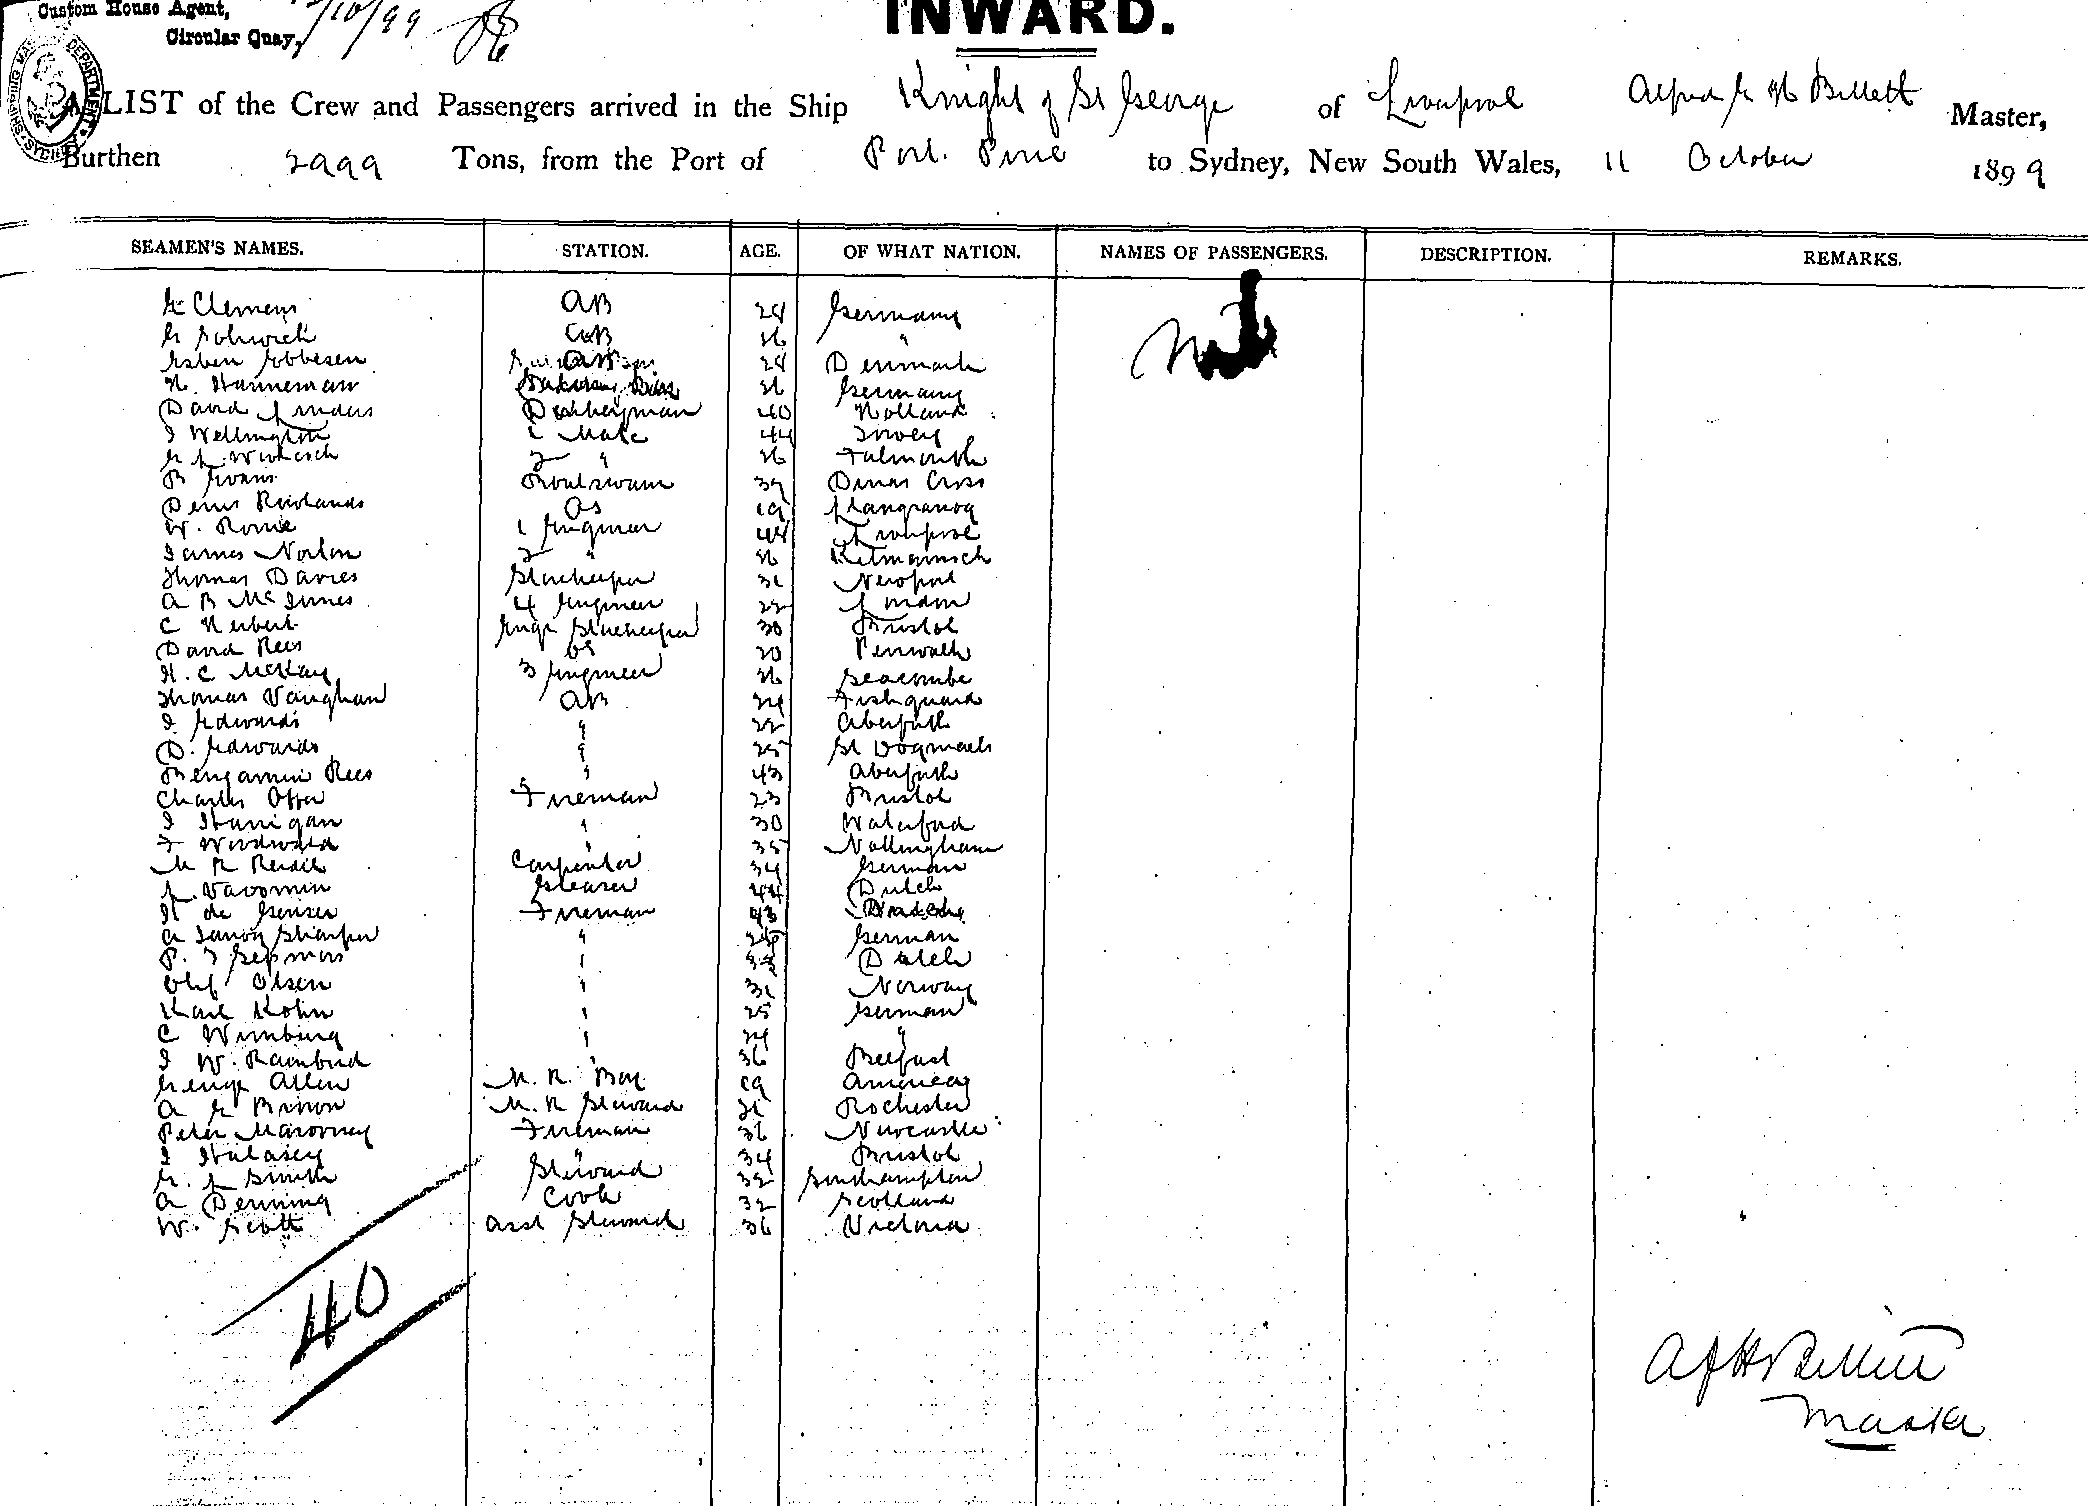 Custom House Agent,
Circular Quay, /10/99
INWARD.
A LIST of the Crew and Passengers arrived in the Ship Knight of St George of Liverpool Alfred H Billett Master,
Burthen 2999 Tons, from the Port of Port Pirie to Sydney, New South Wales, 11 October 1899
SEAMEN'S NAMES. STATION. AGE. OF WHAT NATION. NAMES OF PASSENGERS. DESCRIPTION. REMARKS.
Clemens AB 24 Germany Nil
AB 26 "
Esben Ebbesen AB 24 Denmark
H. Hanneman 26 Germany
David Donkeyman 40 Holland
J Wellington 1 Mate 44 Fowey
2 " 26 Falmouth
B Evans Boatswain 39 Dinas Cross
Rowlands OS 19 Llangranog
W. Rome 1 Engineer 44 Liverpool
James Norton 2 " 26 Kilmarnock
Thomas Davies Storekeeper 31 Newport
A B McInnes 4 Engineer 22 London
C Herbert Engr Storekeeper 30 Bristol
David Rees OS 20 Penwalk
H. C McKay 3 Engineer 26 Seacombe
Thomas Vaughan AB 24 Fishguard
J Edwards " 22 Aberporth
D. Edwards " 25 St Dogmaels
Benjamin Rees " 43 Aberporth
Charles Offer Fireman 23 Bristol
J Hanigan " 30 Waterford
F Woodward " 35 Nottingham
M R Carpenter 34 German
L. Greaser 44 Dutch
H de Fireman 43
A " German
P. J " Dutch
Olaf Olsen " 31 Norway
Karl Kohn " 25 German
C " 24 "
J W. Rainbird " 36 Belfast
George Allen M. R. Boy 19 America
A E Brown M. R Steward 21 Rochester
Peter Fireman 36 Newcastle
J " 34 Bristol
G. L Smith Steward 32 Southampton
A Denning Cook 32 Scotland
W. Scott Asst Steward 36 Victoria
40
Billett
Master